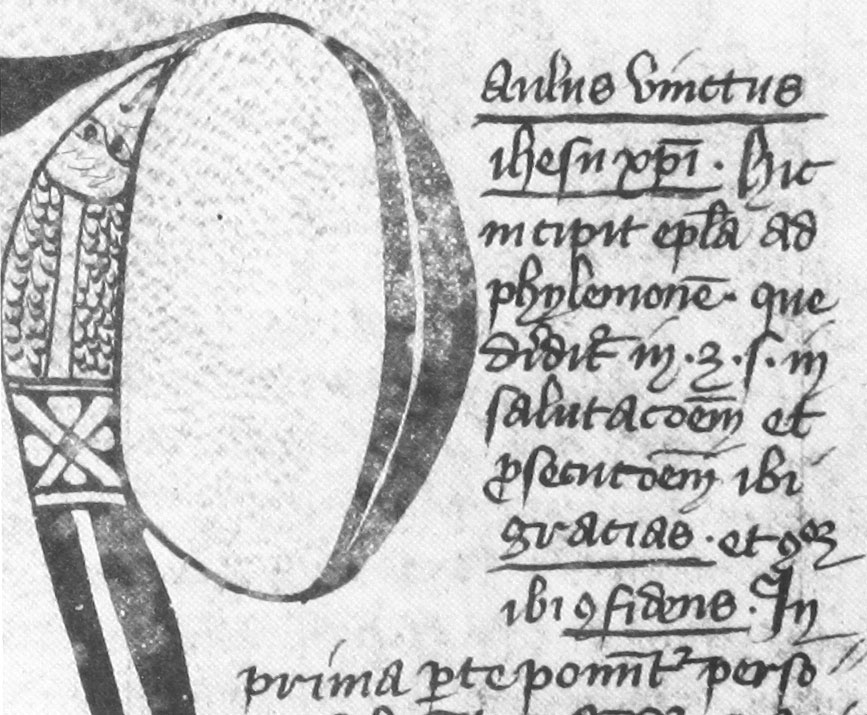 Paulus vinctus
ihesu xp̄i . hic
incipit ep̄la ad
phylemonē . que
diuidit᷑ in .3. s. in
salutac̄oem̄ et
ꝓsecuc̄oem̄ ibi
gracias . et ꝯ
ibi ꝯfidens . In
prima ꝑte ponūt᷑ perso